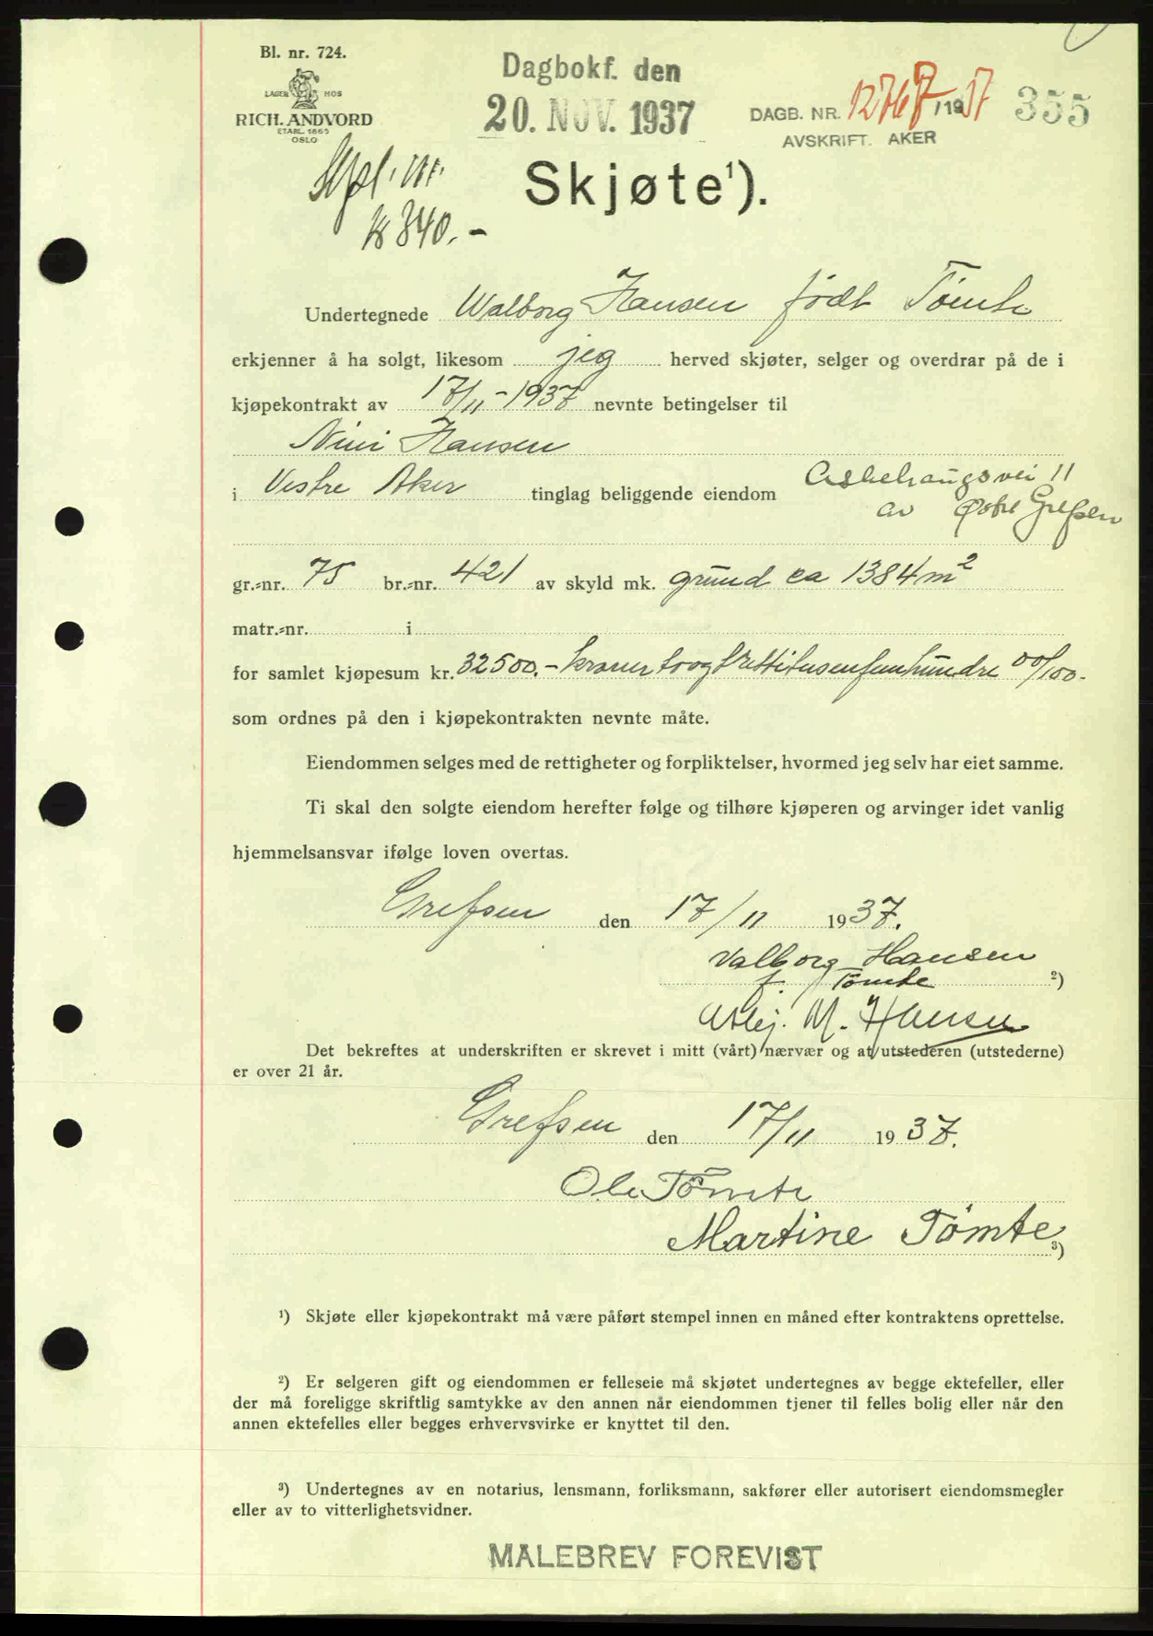 Bl. nr. 724.
LAGER HOS
RICH. ANDVORD
ETABL. 1865
OSLO
Dagbokf. den
20. NOV. 1937
DAGB. NR. 12767/1937
AVSKRIFT. AKER
355
Stpl. m.
kr 340.-
Skjøte¹).
Undertegnede Walborg Hansen født Tömte
erkjenner å ha solgt, likesom jeg herved skjøter, selger og overdrar på de i
kjøpekontrakt av 17/11-1937 nevnte betingelser til
Nini Hansen
i Vestre Aker tinglag beliggende eiendom Asbehaugsvei 11
av Østre Grefsen
gr.-nr. 75 br.-nr. 421 av skyld mk. grund ca 1384 m²
matr.-nr. i
for samlet kjøpesum kr. 32500.- kroner toogtrettitusenfemhundre 00/100.
som ordnes på den i kjøpekontrakten nevnte måte.
Eiendommen selges med de rettigheter og forpliktelser, hvormed jeg selv har eiet samme.
Ti skal den solgte eiendom herefter følge og tilhøre kjøperen og arvinger idet vanlig
hjemmelsansvar ifølge loven overtas.
Grefsen den 17/11 1937.
Valborg Hansen
f. Tömte ²)
M. Hansen
Det bekreftes at underskriften er skrevet i mitt (vårt) nærvær og at utstederen (utstederne)
er over 21 år.
Grefsen den 17/11 1937.
Ole Tömte
Martine Tømte ³)
¹) Skjøte eller kjøpekontrakt må være påført stempel innen en måned efter kontraktens oprettelse.
²) Er selgeren gift og eiendommen er felleseie må skjøtet undertegnes av begge ektefeller, eller
der må foreligge skriftlig samtykke av den annen når eiendommen tjener til felles bolig eller når den
annen ektefelles eller begges erhvervsvirke er knyttet til den.
³) Undertegnes av en notarius, lensmann, forliksmann, sakfører eller autorisert eiendomsmegler
eller av to vitterlighetsvidner.
MALEBREV FOREVIST